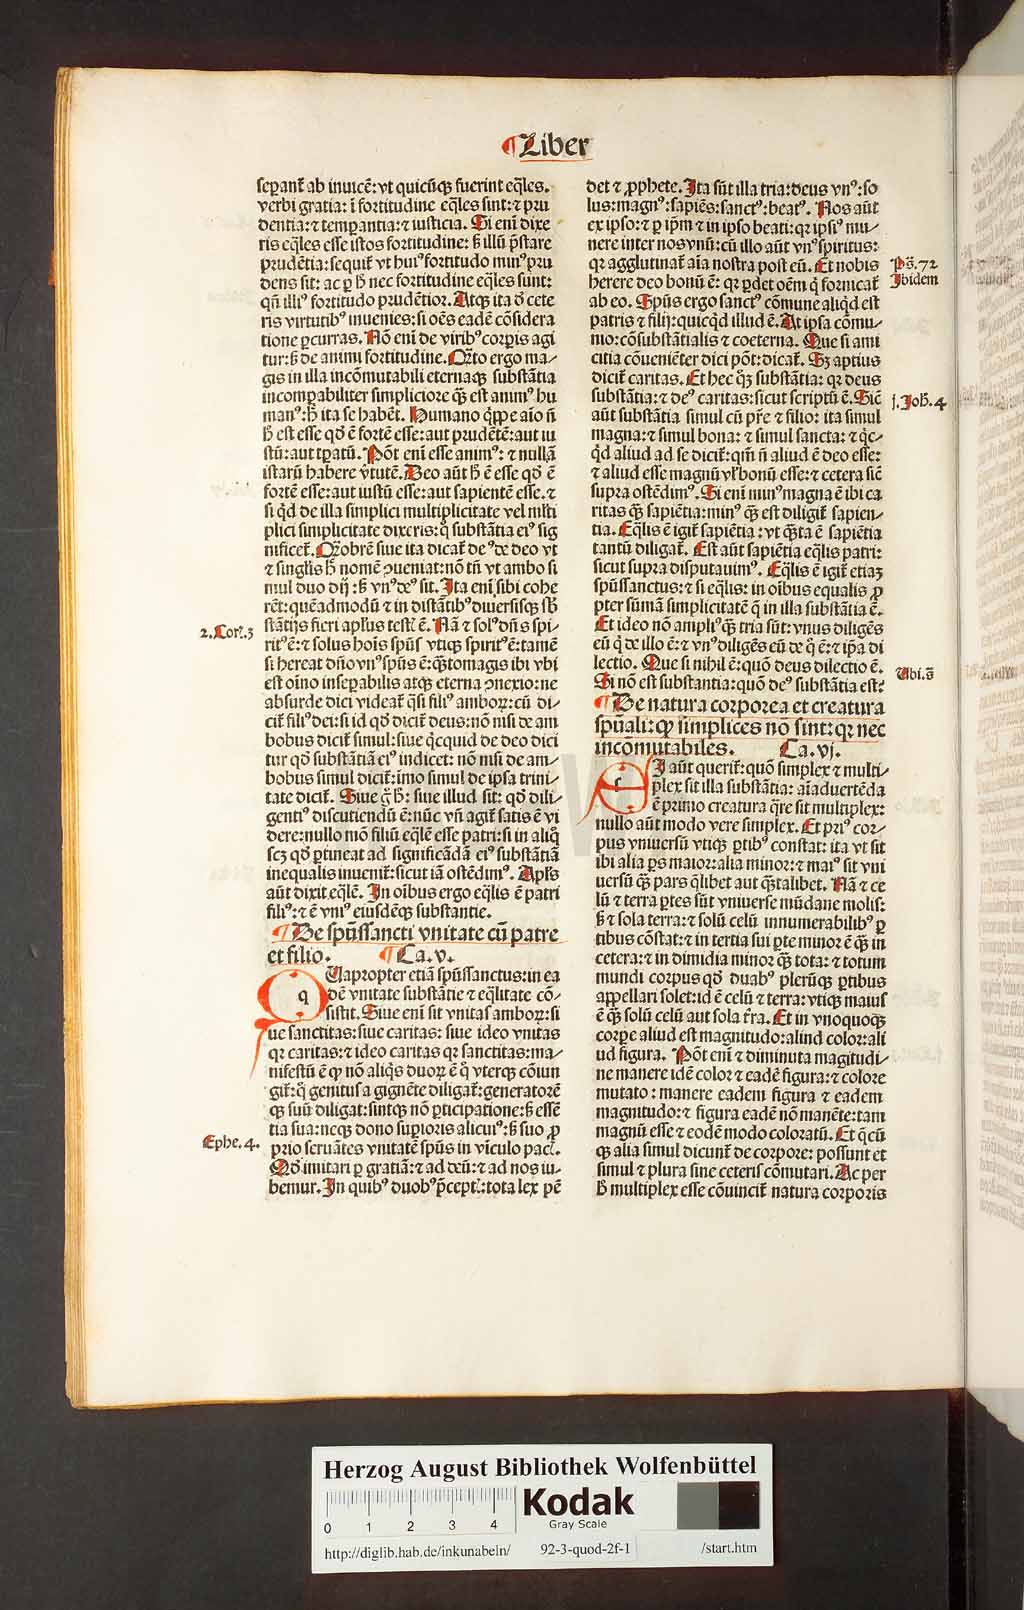 ¶Liber
sepant᷑ ab inuicē: vt quicūqꝫ fuerint eq̄les.
verbi gratia: ī fortitudine eq̄les sint: ⁊ pru
dentia: ⁊ temꝑantia: ⁊ iusticia. Si eni᷑ dixe
ris eq̄les esse istos fortitudine: sꝫ illū p̄stare
prudētia: sequit᷑ vt huiꝰ fortitudo minꝰ pru
dens sit: ac ꝑ h̄ nec fortitudine eq̄les sunt:
qn̄ illiꝰ fortitudo prudētior. Atqꝫ ita d̄ cete
ris virtutibꝰ inuenies: si oēs eadē cōsidera
tione ꝑcurras. Nō eni᷑ de viribꝰ corꝑis agi
tur: sꝫ de animi fortitudine. Q̄to ergo ma⸗
gis in illa incōmutabili eternaqꝫ substātia
incomꝑabiliter simpliciore qꝫ est animꝰ hu
manꝰ: h̄ ita se habēt. Humano q̄ppe aīo n̄
h̄ est esse qd̄ ē fortē esse: aut prudētē: aut iu
stū: aut tꝑatū. Pōt eni᷑ esse animꝰ: ⁊ nullā
istarū habere v̓tutē. Deo aūt h̄ ē esse qd̄ ē
fortē esse: aut iustū esse: aut sapientē esse. ⁊
si qd̄ de illa simplici multiplicitate vel mlti
plici simplicitate dixeris: q̄ substātia eiꝰ sig
nificet᷑. Q̄obrē siue ita dicat᷑ deꝰ de deo vt
⁊ singlis h̄ nomē ꝯueniat: nō tn̄ vt ambo si
mul duo dij: sꝫ vnꝰ deꝰ sit. Ita eni᷑ sibi cohe
rēt: quēadmodū ⁊ in distātibꝰ diuersisqꝫ sb̄
stātijs fieri apl̓us test᷑ ē. Nā ⁊ solꝰ dn̄s spi⸗
ritꝰ ē: ⁊ solus hoīs spūs vtiqꝫ spiritꝰ ē: tamē
si hereat dn̄o vnꝰ spūs ē: q̄stomagis ibi vbi
est oīno inseꝑabilis atqꝫ eterna ꝯnexio: ne
absurde dici videat᷑ q̄si filiꝰ amboꝝ: cū di⸗
cit᷑ filiꝰ dei: si id qd̄ dicit᷑ deus: nō nisi de am
bobus dicit᷑ simul: siue q̄cquid de deo dici
tur qd̄ substātiā eiꝰ indicet: nō nisi de am⸗
bobus simul dicit᷑: imo simul de ipsa trini⸗
tate dicit᷑. Siue g̊ h̄: siue illud sit: qd̄ dili⸗
gentiꝰ discutiendū ē: nūc vn̄ agit᷑ satis ē vi
dere: nullo mō filiū eq̄lē esse patri: si in aliq̊
scꝫ qd̄ ꝑtineat ad significādā eiꝰ substātiā
inequalis inuenit᷑: sicut iā ostēdimꝰ. Apl̓s
aūt dixit eq̄lē. In oībus ergo eq̄lis ē patri
filiꝰ: ⁊ ē vniꝰ eiusdēqꝫ substantie.
¶De spūssancti vnitate cū patre
et filio. ¶Ca. v.
QUapropter etiā spūssanctus: in ea
dē vnitate substātie ⁊ eq̄litate cō⸗
sistit. Siue eni᷑ sit vnitas amboꝝ: si
ue sanctitas: siue caritas: siue ideo vnitas
qꝛ caritas: ⁊ ideo caritas qꝛ sanctitas: ma⸗
nifestū ē qꝫ nō aliq̄s duoꝝ ē q̊ vterqꝫ cōiun
git᷑: q̊ genitus a gignēte diligat᷑: generatorē
qꝫ suū diligat: sintqꝫ nō ꝑticipatione: sꝫ essē
tia sua: neqꝫ dono suꝑioris alicuiꝰ: sꝫ suo ꝓ
prio seruātes vnitatē spūs in vīculo pacꝭ.
Qd̄ imitari ꝑ gratiā: ⁊ ad deū: ⁊ ad nos iu⸗
bemur. In quibꝰ duobꝰ p̄ceptꝭ: tota lex pē
2. Cor̓. 3
Ephe. 4.
det ⁊ ꝓphete. Ita sūt illa tria: deus vnꝰ: so
lus: magnꝰ: sapiēs: sanctꝰ: beatꝰ. Nos aūt
ex ipso: ⁊ ꝑ ipm̄ ⁊ in ipso beati: qꝛ ipsiꝰ mu⸗
nere inter nos vnū: cū illo aūt vnꝰ spiritus:
qꝛ agglutinat᷑ aīa nostra post eū. Et nobis
herere deo bonū ē: qꝛ ꝑdet oēm q̊ fornicat᷑
ab eo. Spūs ergo sanctꝰ cōmune aliqd̄ est
patris ⁊ filij: quicqd̄ illud ē. At ipsa cōmu⸗
nio: cōsubstātialis ⁊ coeterna. Que si ami
citia cōueniēter dici pōt: dicat᷑. Sꝫ aptius
dicit᷑ caritas. Et hec qꝫ substātia: qꝛ deus
substātia: ⁊ deꝰ caritas: sicut scriptū ē. Sic̄
aūt substātia simul cū pr̄e ⁊ filio: ita simul
magna: ⁊ simul bona: ⁊ simul sancta: ⁊ q̄c⸗
qd̄ aliud ad se dicit᷑: qm̄ n̄ aliud ē deo esse:
⁊ aliud esse magnū vl̓ bonū esse: ⁊ cetera sic̄
supra ostēdimꝰ. Si eni᷑ minꝰ magna ē ibi ca
ritas qꝫ sapiētia: minꝰ qꝫ est diligit᷑ sapien⸗
tia. Eq̄lis ē igit᷑ sapiētia: vt q̄sta ē sapiētia
tantū diligat᷑. Est aūt sapiētia eq̄lis patri:
sicut supra disputauimꝰ. Eq̄lis ē igit᷑ etiaꝫ
spūssanctus: ⁊ si eq̄lis: in oībus equalis ꝓ
pter sūmā simplicitatē q̄ in illa substātia ē.
Et ideo nō ampliꝰ qꝫ tria sūt: vnus diligēs
eū q̊ de illo ē: ⁊ vnꝰ diligēs eū de q̊ ē: ⁊ ip̄a di
lectio. Que si nihil ē: quō deus dilectio ē.
Si nō est substantia: quō deꝰ substātia est?
¶De natura corporea et creatura
spūali: qꝫ simplices nō sint: qꝛ nec
incōmutabiles. Ca. vj.
SI aūt querit᷑: quō simplex ⁊ multi⸗
plex sit illa substātia: aīaduertēda
ē primo creatura q̄re sit multiplex:
nullo aūt modo vere simplex. Et priꝰ cor⸗
pus vniuersū vtiqꝫ ꝑtibꝰ constat: ita vt sit
ibi alia ꝑs maior: alia minor: ⁊ maiꝰ sit vni
uersū qꝫ pars q̄libet aut q̄stalibet. Nā ⁊ ce
lū ⁊ terra ꝑtes sūt vniuerse mūdane molis:
sꝫ ⁊ sola terra: ⁊ solū celū innumerabilibꝰ ꝑ
tibus cōstat: ⁊ in tertia sui ꝑte minor ē qꝫ in
cetera: ⁊ in dimidia minor qꝫ tota: ⁊ totum
mundi corpus qd̄ duabꝰ plerūqꝫ ꝑtibus
appellari solet: id ē celū ⁊ terra: vtiqꝫ maius
ē qꝫ solū celū aut sola t̓ra. Et in vnoquoqꝫ
corꝑe aliud est magnitudo: aliud color: ali
ud figura. Pōt eni᷑ ⁊ diminuta magitudi⸗
ne manere idē color ⁊ eadē figura: ⁊ colore
mutato: manere eadem figura ⁊ eadem
magnitudo: ⁊ figura eadē nō manēte: tam
magnū esse ⁊ eodē modo coloratū. Et q̄cū
qꝫ alia simul dicunt᷑ de corpore: possunt et
simul ⁊ plura sine ceteris cōmutari. Ac per
h̄ multiplex esse cōuincit᷑ natura corporis
Ps̄. 72
Ibidem
j. Joh̄. 4
Ubi. s̄
Herzog August Bibliothek Wolfenbüttel
0 1 2 3 4
Kodak
Gray Scale
http://diglib.hab.de/inkunabeln/ 92-3-quod-2f-1 /start.htm